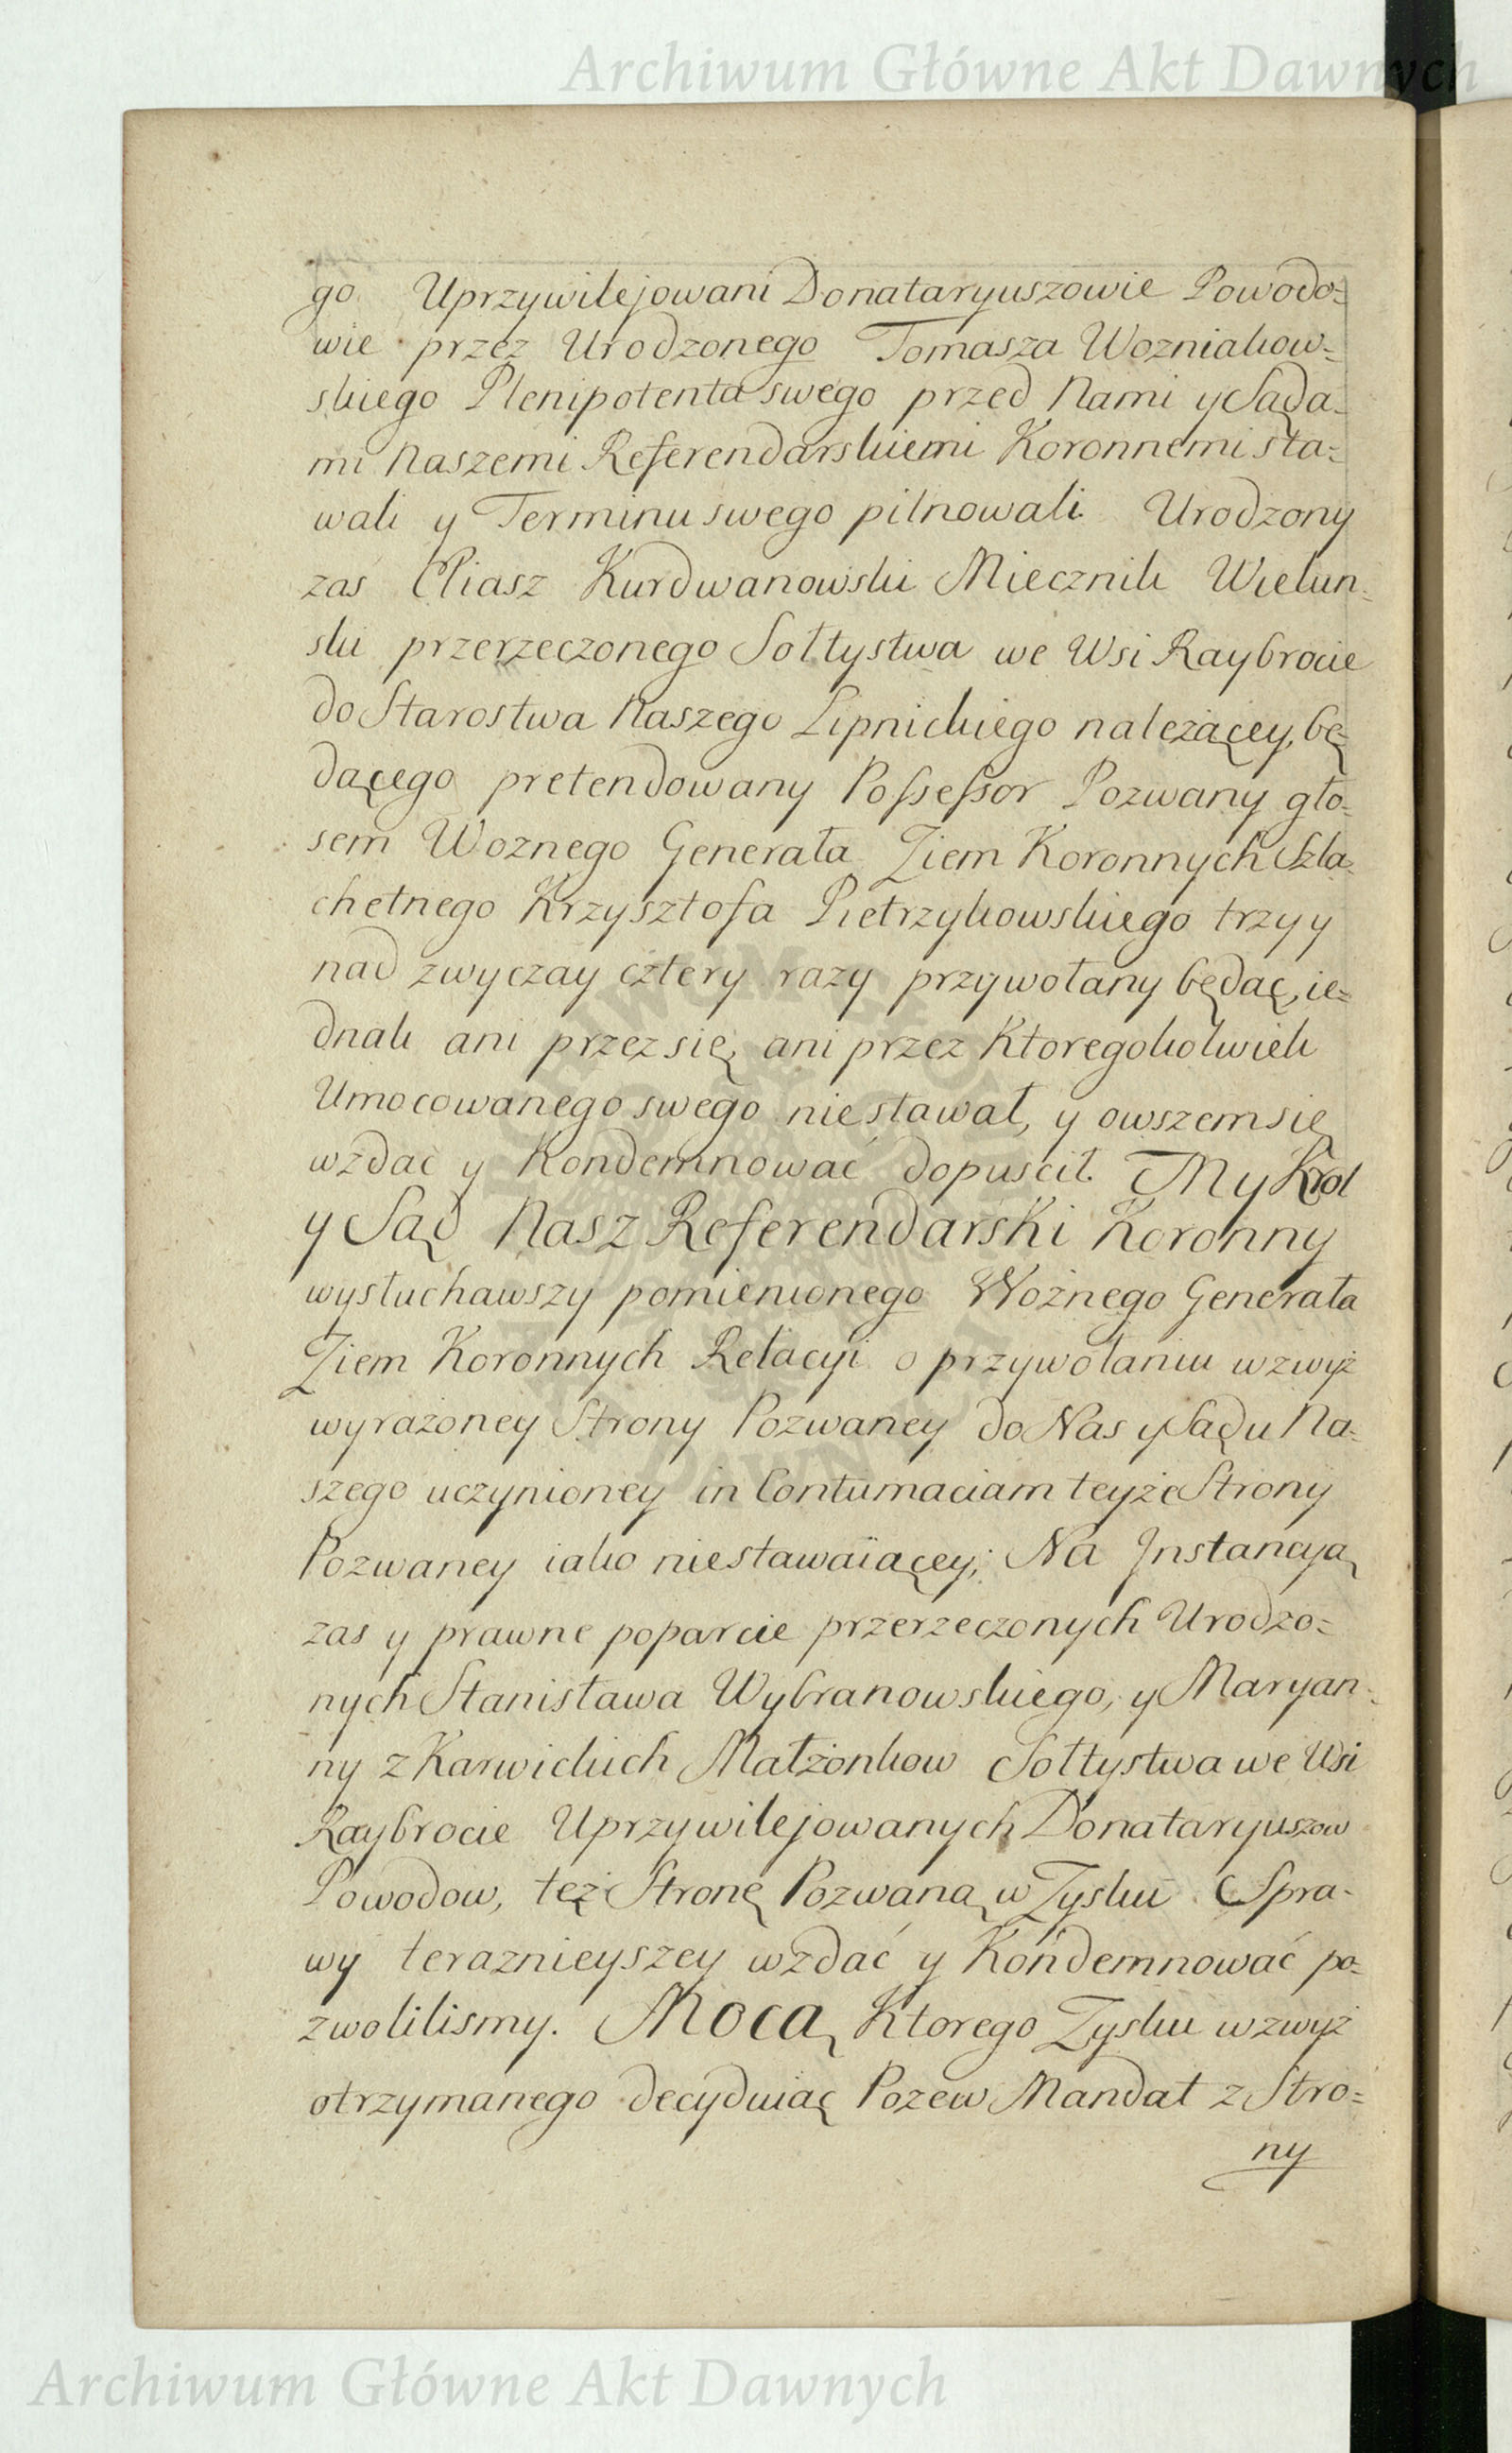 Archiwum Główne Akt Dawnych
go Uprzywilejowani Donataryuszowie Powodo=
wie przez Urodzonego Tomasza Wozniakow=
skiego Plenipotenta swego przed Nami y Sąda=
mi Naszemi Referendarskiemi Koronnemi sta=
wali y Terminu swego pilnowali. Urodzony
zaś Eliasz Kurdwanowski Miecznik Wielun=
ski przerzeczonego Sołtystwa we Wsi Raybrocie
do Starostwa Naszego Lipnickiego należącey, bę=
dącego pretendowany Possessor Pozwany gło=
sem Woznego Generała Ziem Koronnych Szla=
chetnego Krzysztofa Pietrzykowskiego trzy y
nad zwyczay cztery razy przywołany będąc, ie=
dnak ani przez się, ani przez Ktoregokolwiek
Umocowanego swego niestawał, y owszem się
wzdać y Kondemnować dopuscił. My Krol
y Sąd Nasz Referendarski Koronny
wysłuchawszy pomienionego Woźnego Generała
Ziem Koronnych Relacyi o przywołaniu wzwyż
wyrażoney Strony Pozwaney do Nas y Sądu Na=
szego uczynioney in Contumaciam teyże Strony
Pozwaney iako niestawaiącey; Na Jnstancyą
zas y prawne poparcie przerzeczonych Urodzo=
nych Stanisława Wybranowskiego, y Maryan=
ny z Karwickich Małżonkow Sołtystwa we Wsi
Raybrocie Uprzywilejowanych Donataryuszow
Powodow, też Stronę Pozwaną w Zysku Spra=
wy teraznieyszey wzdać y Kondemnować po=
zwolilismy. Mocą Ktorego Zysku wzwyż
otrzymanego decyduiąc Pozew Mandat z Stro=
ny
Archiwum Główne Akt Dawnych